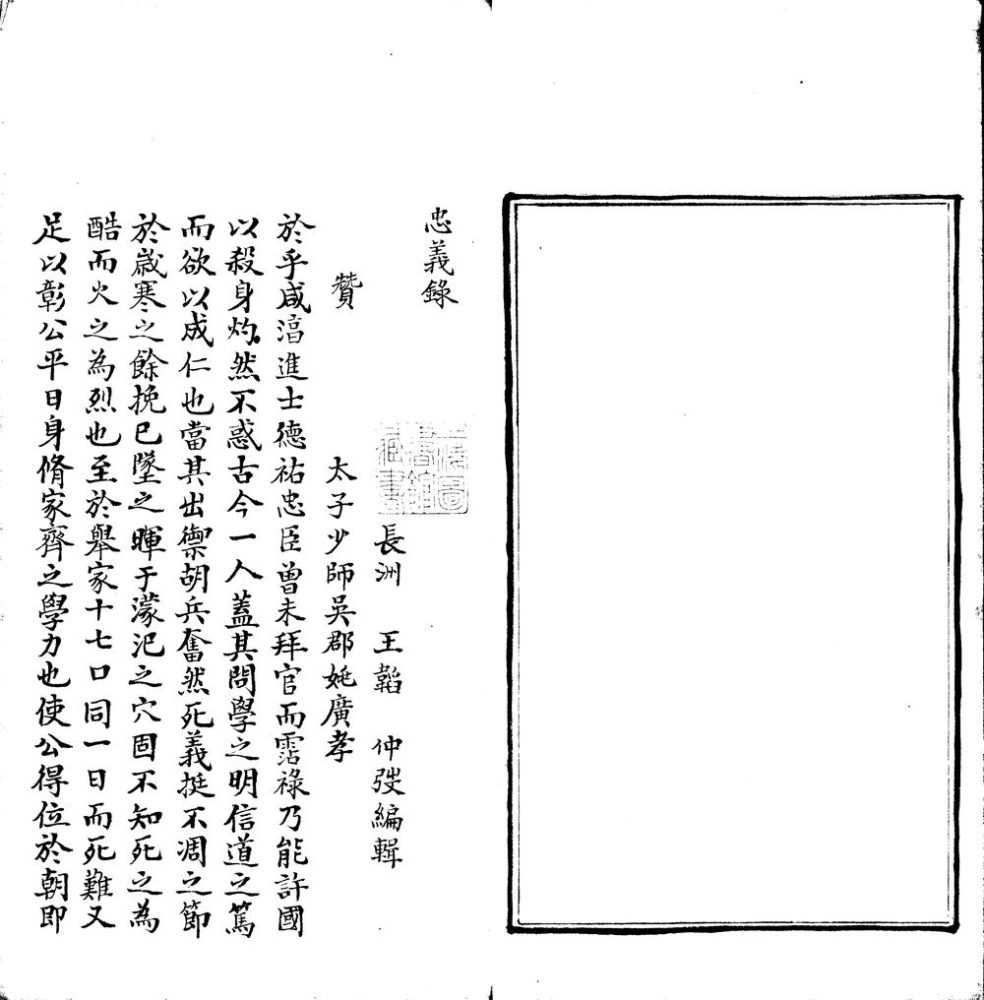 忠義錄
長洲 王韜 仲弢編輯
贊 太子少師吳郡姚廣孝
於乎咸淳進士德祐忠臣曾未拜官而霑祿乃能許國
以殺身灼然不惑古今一人蓋其問學之明信道之篤
而欲以成仁也當其出禦胡兵奮然死義挺不凋之節
於歲寒之餘挽已墜之暉于濛汜之穴固不知死之為
酷而火之為烈也至於舉家十七口同一日而死難又
足以彰公平日身脩家齊之學力也使公得位於朝即
上海圖書館藏書